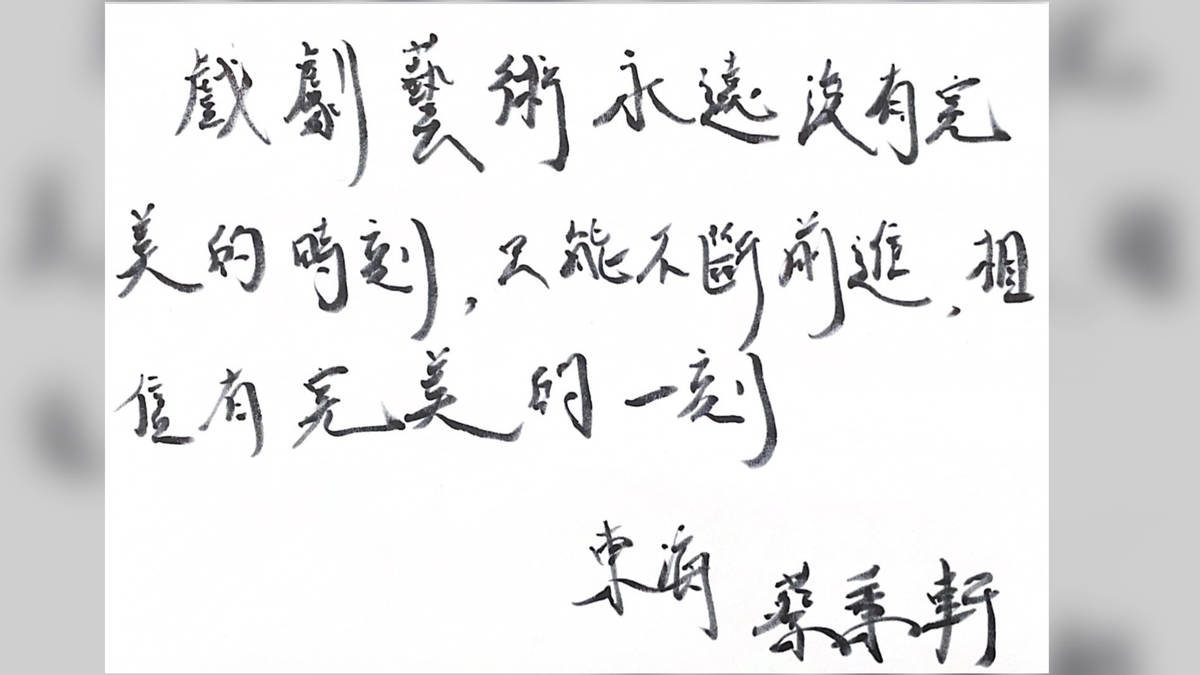 戲劇藝術永遠沒有完
美的時刻,只能不斷前進,相
信有完美的一刻
東海 蔡秉軒